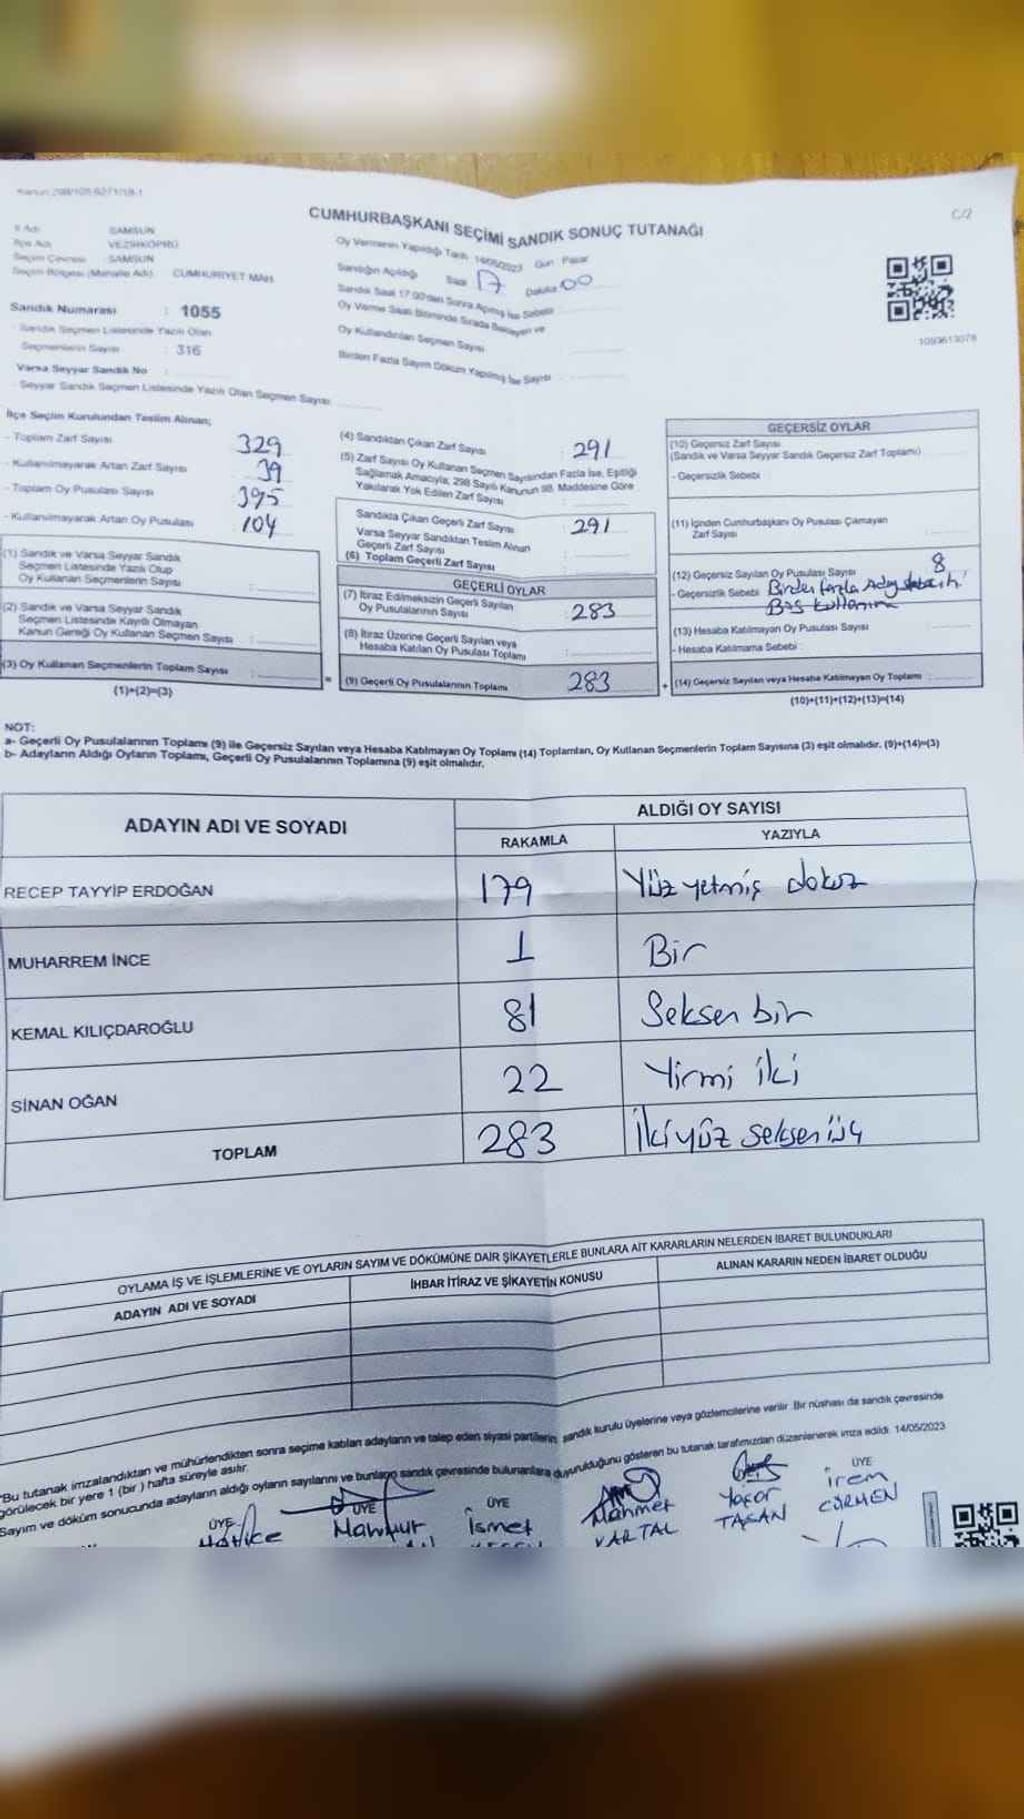 C/2
CUMHURBAŞKANI SEÇİMİ SANDIK SONUÇ TUTANAĞI
İl Adı : SAMSUN
İlçe Adı : VEZİRKÖPRÜ
Seçim Çevresi : SAMSUN
Seçim Bölgesi (Mahalle Adı) : CUMHURİYET MAH.
Sandık Numarası : 1055
Sandık Seçmen Listesinde Yazılı Olan
Seçmenlerin Sayısı : 316
Varsa Seyyar Sandık No
Seyyar Sandık Seçmen Listesinde Yazılı Olan Seçmen Sayısı
Oy Vermenin Yapıldığı Tarih 14/05/2023 Gün Pazar
Sandığın Açıldığı Saat 17 Dakika 00
Sandık Saat 17:00'den Sonra Açılmış İse Sebebi
Oy Verme Saati Bitiminde Sırada Bekleyen ve
Oy Kullandırılan Seçmen Sayısı
Birden Fazla Sayım Döküm Yapılmış İse Sayısı
1093613078
İlçe Seçim Kurulundan Teslim Alınan;
- Toplam Zarf Sayısı 329
- Kullanılmayarak Artan Zarf Sayısı 39
- Toplam Oy Pusulası Sayısı 395
- Kullanılmayarak Artan Oy Pusulası 104
(1) Sandık ve Varsa Seyyar Sandık
Seçmen Listesinde Yazılı Olup
Oy Kullanan Seçmenlerin Sayısı
(2) Sandık ve Varsa Seyyar Sandık
Seçmen Listesinde Kayıtlı Olmayan
Kanun Gereği Oy Kullanan Seçmen Sayısı
(3) Oy Kullanan Seçmenlerin Toplam Sayısı
(1)+(2)=(3)
(4) Sandıktan Çıkan Zarf Sayısı 291
(5) Zarf Sayısı Oy Kullanan Seçmen Sayısından Fazla İse, Eşitliği
Sağlamak Amacıyla, 298 Sayılı Kanunun 98. Maddesine Göre
Yakılarak Yok Edilen Zarf Sayısı
Sandıkta Çıkan Geçerli Zarf Sayısı : 291
Varsa Seyyar Sandıktan Teslim Alınan
Geçerli Zarf Sayısı
(6) Toplam Geçerli Zarf Sayısı
GEÇERLİ OYLAR
(7) İtiraz Edilmeksizin Geçerli Sayılan
Oy Pusulalarının Sayısı : 283
(8) İtiraz Üzerine Geçerli Sayılan veya
Hesaba Katılan Oy Pusulası Toplamı
(9) Geçerli Oy Pusulalarının Toplamı 283
GEÇERSİZ OYLAR
(10) Geçersiz Zarf Sayısı
(Sandık ve Varsa Seyyar Sandık Geçersiz Zarf Toplamı)
- Geçersizlik Sebebi
(11) İçinden Cumhurbaşkanı Oy Pusulası Çıkmayan
Zarf Sayısı
(12) Geçersiz Sayılan Oy Pusulası Sayısı 8
- Geçersizlik Sebebi Birden fazla Aday
Boş kullanım
(13) Hesaba Katılmayan Oy Pusulası Sayısı
- Hesaba Katılmama Sebebi
(14) Geçersiz Sayılan veya Hesaba Katılmayan Oy Toplamı
(10)+(11)+(12)+(13)=(14)
NOT:
a- Geçerli Oy Pusulalarının Toplamı (9) ile Geçersiz Sayılan veya Hesaba Katılmayan Oy Toplamı (14) Toplamları, Oy Kullanan Seçmenlerin Toplam Sayısına (3) eşit olmalıdır. (9)+(14)=(3)
b- Adayların Aldığı Oyların Toplamı, Geçerli Oy Pusulalarının Toplamına (9) eşit olmalıdır.
ADAYIN ADI VE SOYADI
ALDIĞI OY SAYISI
RAKAMLA YAZIYLA
RECEP TAYYİP ERDOĞAN 179 Yüz yetmiş dokuz
MUHARREM İNCE 1 Bir
KEMAL KILIÇDAROĞLU 81 Seksen bir
SİNAN OĞAN 22 Yirmi iki
TOPLAM 283 İkiyüz seksen üç
OYLAMA İŞ VE İŞLEMLERİNE VE OYLARIN SAYIM VE DÖKÜMÜNE DAİR ŞİKAYETLERLE BUNLARA AİT KARARLARIN NELERDEN İBARET BULUNDUKLARI
ADAYIN ADI VE SOYADI İHBAR İTİRAZ VE ŞİKAYETİN KONUSU ALINAN KARARIN NEDEN İBARET OLDUĞU
"Bu tutanak imzalandıktan ve mühürlendikten sonra seçime katılan adayların ve talep eden siyasi partilerin, sandık kurulu üyelerine veya gözlemcilerine verilir. Bir nüshası da sandık çevresinde
görülecek bir yere 1 (bir) hafta süreyle asılır.
Sayım ve döküm sonucunda adayların aldığı oyların sayılarını ve bunların sandık çevresinde bulunanlara duyurulduğunu gösteren bu tutanak tarafımızdan düzenlenerek imza edildi. 14/05/2023
ÜYE ÜYE ÜYE ÜYE
Hatice İsmet Mahmut KARTAL Yaşar TAŞAN İrem